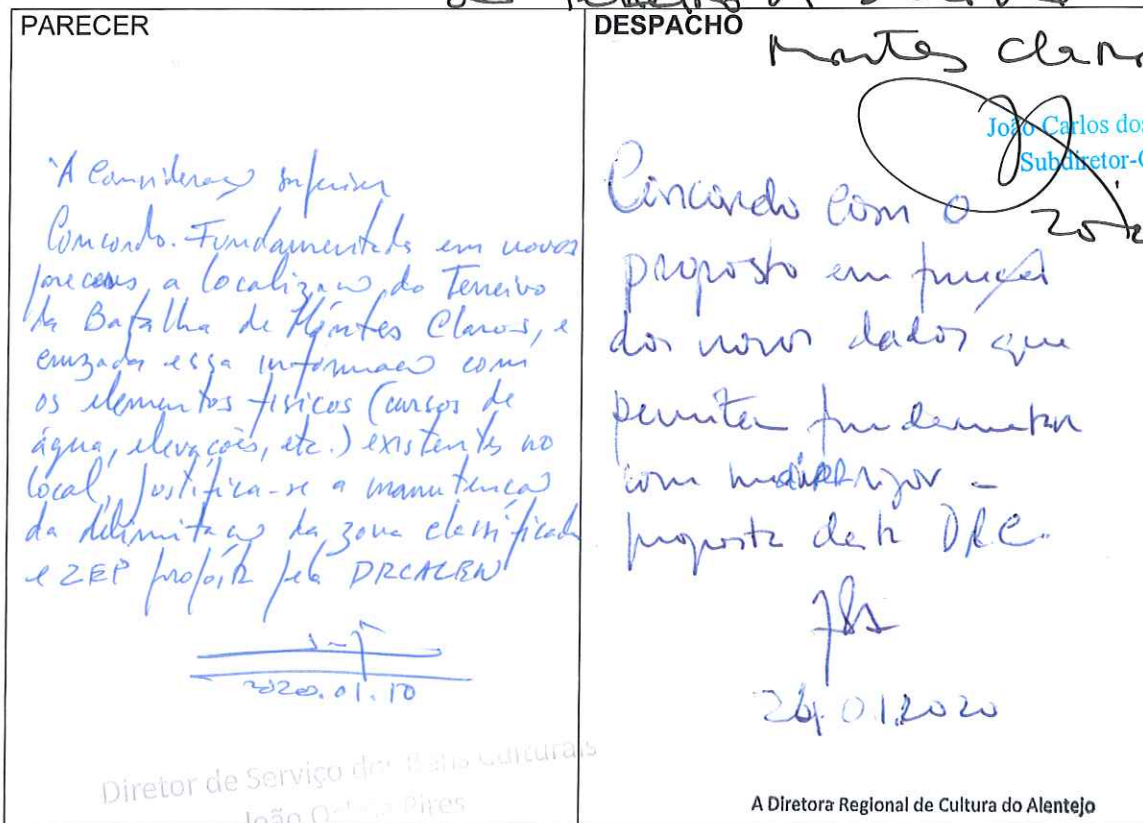 PARECER
"À Consideração Superior
Concordo. Fundamentada em novos
pareceres, a localização do Terreiro
da Batalha de Montes Claros, e
cruzada essa informação com
os elementos físicos (cursos de
água, elevações, etc.) existentes no
local, justifica-se a manutenção
da delimitação da zona classificada
e ZEP proposta pela DRCALEN
2020.01.10
Diretor de Serviço dos Bens Culturais
João Pires
DESPACHO
Montes Claro
João Carlos dos
Subdiretor-G
Concordo com o
proposto em função
dos novos dados que
permitem fundamentar
com maior rigor a
proposta desta DRC.
24.01.2020
A Diretora Regional de Cultura do Alentejo